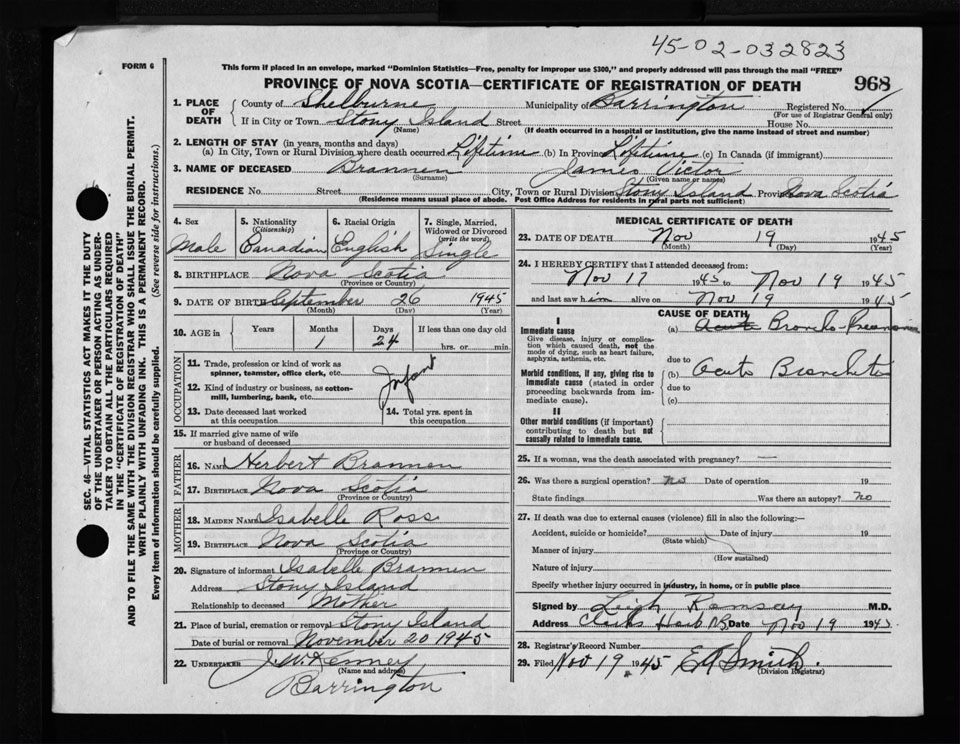 45-02-032823
FORM 6
This form if placed in an envelope, marked "Dominion Statistics—Free, penalty for improper use $300," and properly addressed will pass through the mail "FREE"
PROVINCE OF NOVA SCOTIA—CERTIFICATE OF REGISTRATION OF DEATH
968
1. PLACE OF DEATH
County of Shelburne Municipality of Barrington Registered No.
(For use of Registrar General only)
If in City or Town Stony Island Street House No.
(Name) (If death occurred in a hospital or institution, give the name instead of street and number)
2. LENGTH OF STAY (in years, months and days)
(a) In City, Town or Rural Division where death occurred Lifetime (b) In Province Lifetime (c) In Canada (if immigrant)
3. NAME OF DECEASED Brannen James Victor
(Surname) (Given name or names)
RESIDENCE No. Street City, Town or Rural Division Stony Island Province Nova Scotia
(Residence means usual place of abode. Post Office Address for residents in rural parts not sufficient)
4. Sex
Male
5. Nationality
(Citizenship)
Canadian
6. Racial Origin
English
7. Single, Married, Widowed or Divorced
(write the word)
Single
8. BIRTHPLACE Nova Scotia
(Province or Country)
9. DATE OF BIRTH September 26 1945
(Month) (Day) (Year)
10. AGE in
Years Months Days If less than one day old
1 24 hrs. or min.
OCCUPATION
11. Trade, profession or kind of work as
spinner, teamster, office clerk, etc.
Infant
12. Kind of industry or business, as cotton-
mill, lumbering, bank, etc.
13. Date deceased last worked
at this occupation
14. Total yrs. spent in
this occupation
15. If married give name of wife
or husband of deceased
FATHER
16. NAME Herbert Brannen
17. BIRTHPLACE Nova Scotia
(Province or Country)
MOTHER
18. MAIDEN NAME Isabelle Ross
19. BIRTHPLACE Nova Scotia
(Province or Country)
20. Signature of informant Isabelle Brannen
Address Stony Island
Relationship to deceased Mother
21. Place of burial, cremation or removal Stony Island
Date of burial or removal November 20 1945
22. UNDERTAKER J.W. Kenney
(Name and address)
Barrington
MEDICAL CERTIFICATE OF DEATH
23. DATE OF DEATH Nov 19 1945
(Month) (Day) (Year)
24. I HEREBY CERTIFY that I attended deceased from:
Nov 17 1945 to Nov 19 1945
and last saw him alive on Nov 19 1945
CAUSE OF DEATH
I
Immediate cause
Give disease, injury or complica-
tion which caused death, not the
mode of dying, such as heart failure,
asphyxia, asthenia, etc.
(a) Acute Broncho-Pneumonia
due to
Morbid conditions, if any, giving rise to
immediate cause (stated in order
proceeding backwards from im-
mediate cause).
(b) Acute Bronchitis
due to
(c)
II
Other morbid conditions (if important)
contributing to death but not
causally related to immediate cause.
25. If a woman, was the death associated with pregnancy? —
26. Was there a surgical operation? No Date of operation 19
State findings Was there an autopsy? No
27. If death was due to external causes (violence) fill in also the following:—
Accident, suicide or homicide? Date of injury 19
(State which)
Manner of injury
(How sustained)
Nature of injury
Specify whether injury occurred in industry, in home, or in public place
Signed by Leigh Ramsay M.D.
Address Clarks Harb NS Date Nov 19 1945
28. Registrar's Record Number
29. Filed Nov 19 1945 E A Smith
(Division Registrar)
SEC. 46—VITAL STATISTICS ACT MAKES IT THE DUTY
OF THE UNDERTAKER OR PERSON ACTING AS UNDER-
TAKER TO OBTAIN ALL THE PARTICULARS REQUIRED
IN THE "CERTIFICATE OF REGISTRATION OF DEATH"
AND TO FILE THE SAME WITH THE DIVISION REGISTRAR WHO SHALL ISSUE THE BURIAL PERMIT.
WRITE PLAINLY WITH UNFADING INK. THIS IS A PERMANENT RECORD.
Every item of information should be carefully supplied. (See reverse side for instructions.)